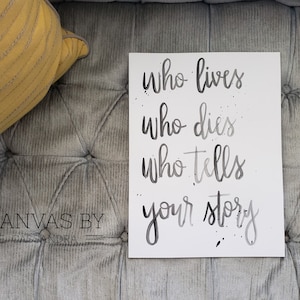 who lives
who dies
who tells
your story
ANVAS BY